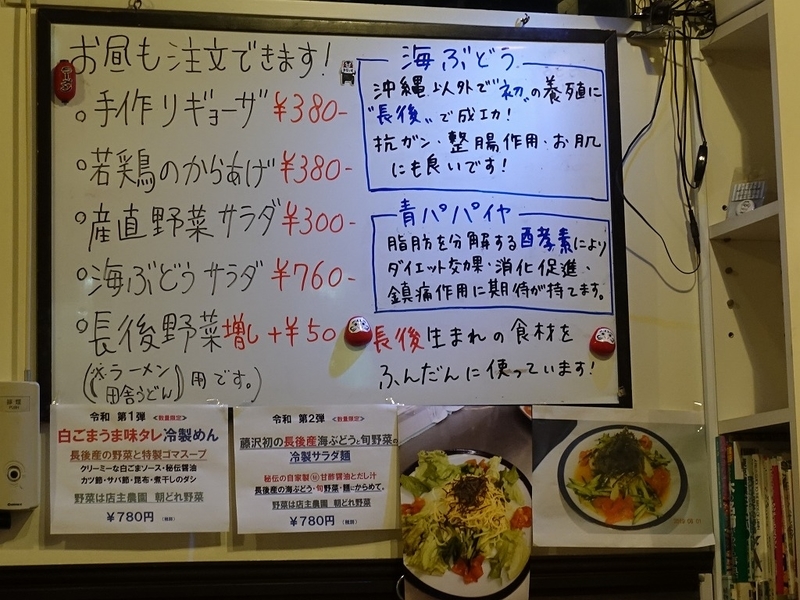 お昼も注文できます!
。手作りギョーザ ¥380-
。若鶏のからあげ ¥380-
。産直野菜サラダ ¥300-
。海ぶどうサラダ ¥760-
。長後野菜増し +¥50
(※ラーメン
田舎うどん) 用です。)
海ぶどう
沖縄以外で"初"の養殖に
"長後"で成功!
抗ガン・整腸作用・お肌
にも良いです!
青パパイヤ
脂肪を分解する酵素により
ダイエット効果・消化促進・
鎮痛作用に期待が持てます。
長後生まれの食材を
ふんだんに使っています!
令和 第1弾 <数量限定>
白ごまうま味タレ冷製めん
長後産の野菜と特製ゴマスープ
クリーミーな白ごまソース・秘伝醤油
カツ節・サバ節・昆布・煮干しのダシ
野菜は店主農園 朝どれ野菜
¥780円 (税税)
令和 第2弾 <数量限定>
藤沢初の長後産海ぶどうと旬野菜の
冷製サラダ麺
秘伝の自家製㊙甘酢醤油とだし汁
長後産の海ぶどう・旬野菜・麺にからめて。
野菜は店主農園 朝どれ野菜
¥780円